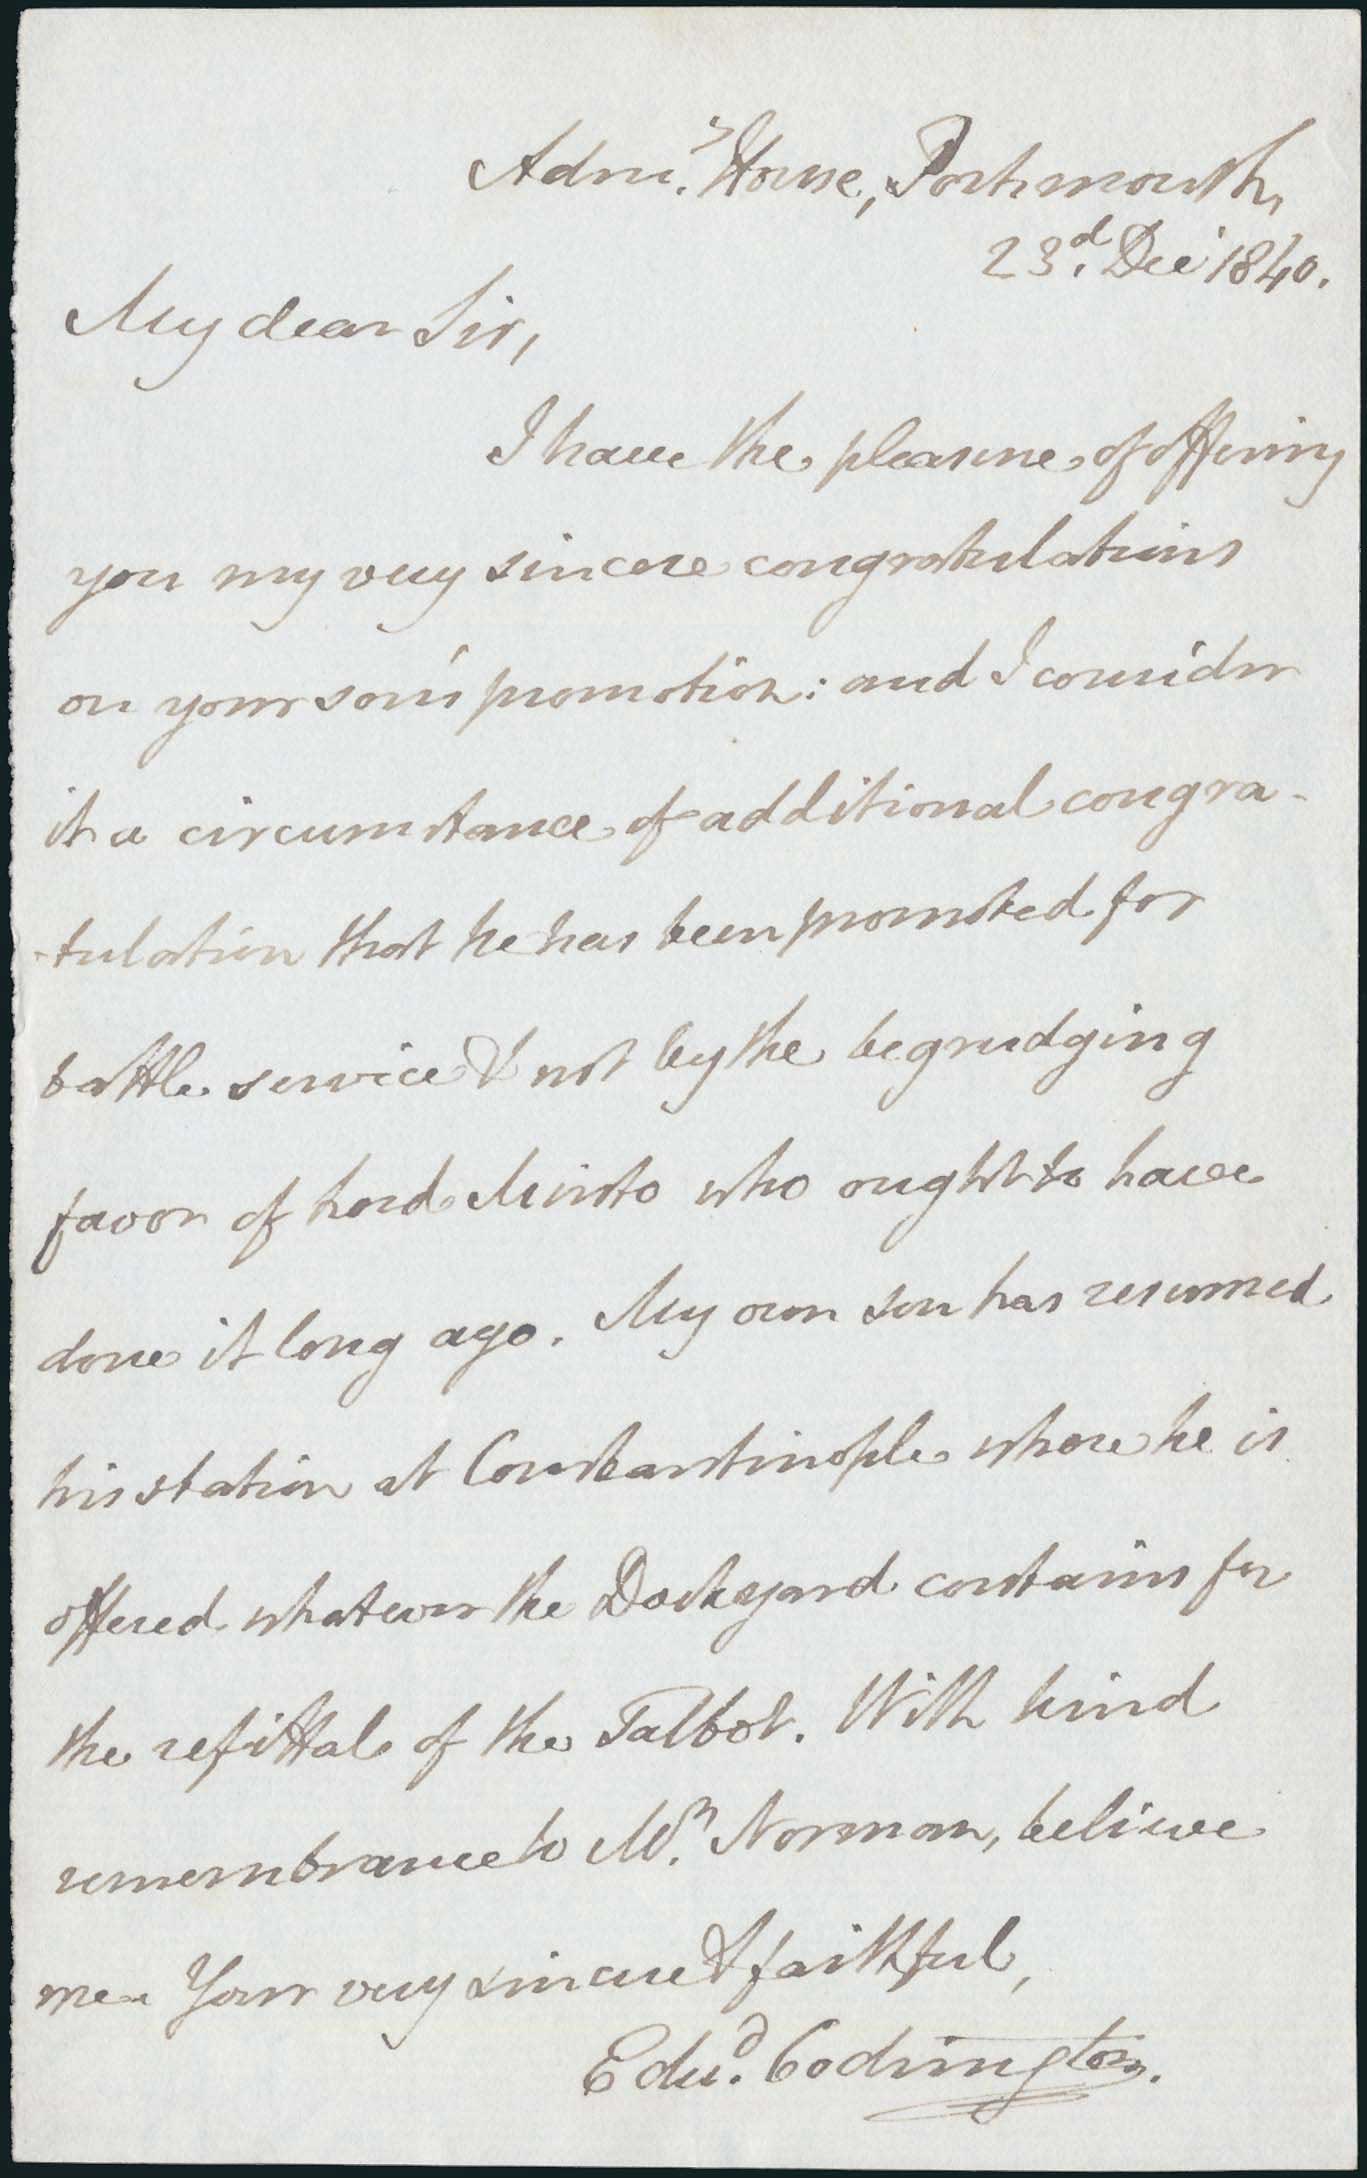 Adm.s House, Portsmouth,
23.d Dec 1840.
My dear Sir,
I have the pleasure of offering
you my very sincere congratulations
on your son's promotion: and I consider
it a circumstance of additional congra-
-tulation that he has been promoted for
battle service & not by the begrudging
favor of Lord Minto who ought to have
done it long ago. My own son has resumed
his station at Constantinople where he is
offered whatever the Dockyard contains for
the refittal of the Talbot. With kind
remembrance to Norman, believe
me Your very sincere & faithful,
Edw.d Codrington.